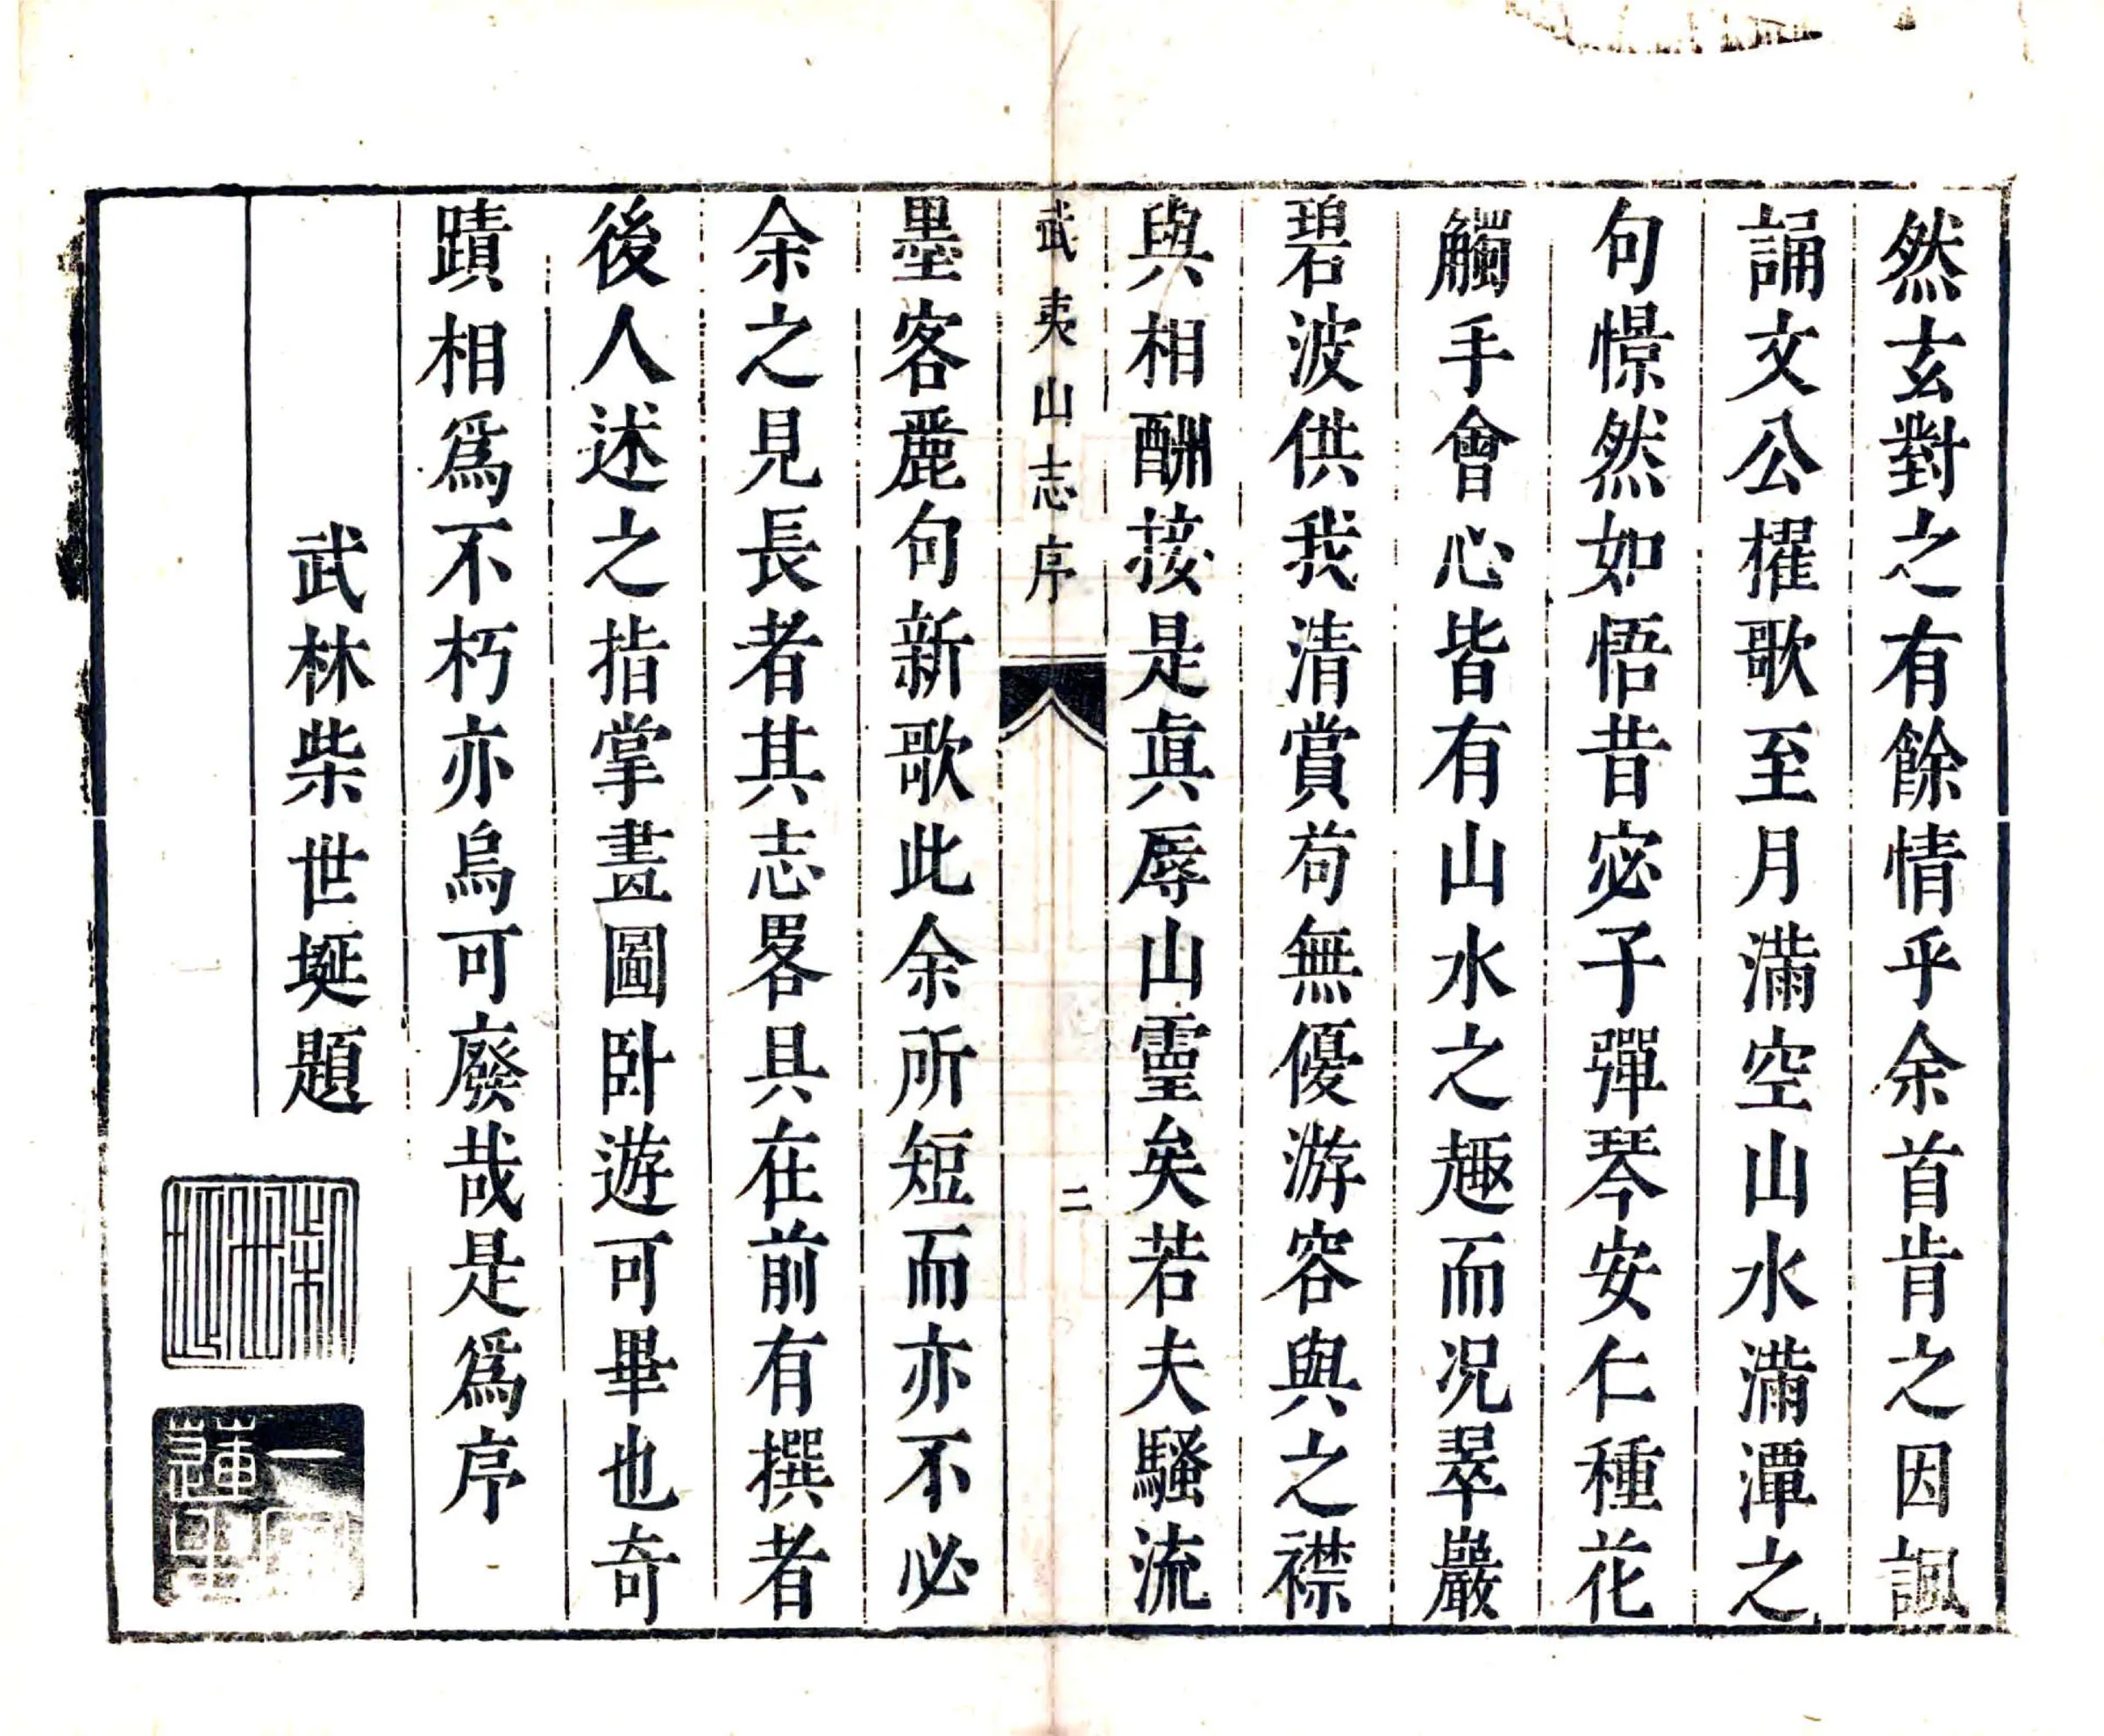 然玄對之有餘情乎余首肯之因諷
誦文公櫂歌至月滿空山水滿潭之
句憬然如悟昔宓子彈琴安仁種花
觸手會心皆有山水之趣而況翠巖
碧波供我清賞苟無優游容與之襟
與相酬接是眞辱山靈矣若夫騷流
武夷山志序
二
墨客麗句新歌此余所短而亦不必
余之見長者其志畧具在前有撰者
後人述之指掌畫圖卧遊可畢也奇
蹟相爲不朽亦烏可廢哉是爲序
武林柴世埏題